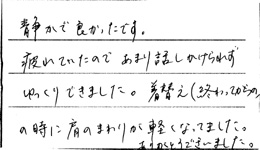 静かで良かったです。
疲れていたので あまり話しかけられず
ゆっくりできました。着替え(終わってからの
の時に肩のまわりが軽くなってました。
ありがとうございました。